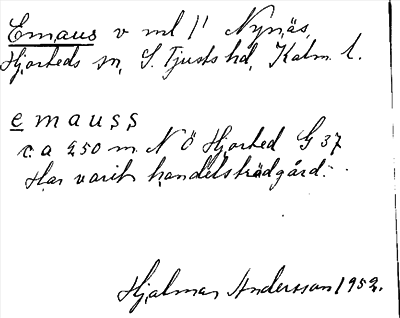 Emaus v ml 1' Nynäs,
Hjorteds sn, S. Tjusts hd, Kalm. l.
emauss
c:a 250 m N Ö Hjorted G 37
Har varit handelsträdgård.
Hjalmar Andersson 1952.